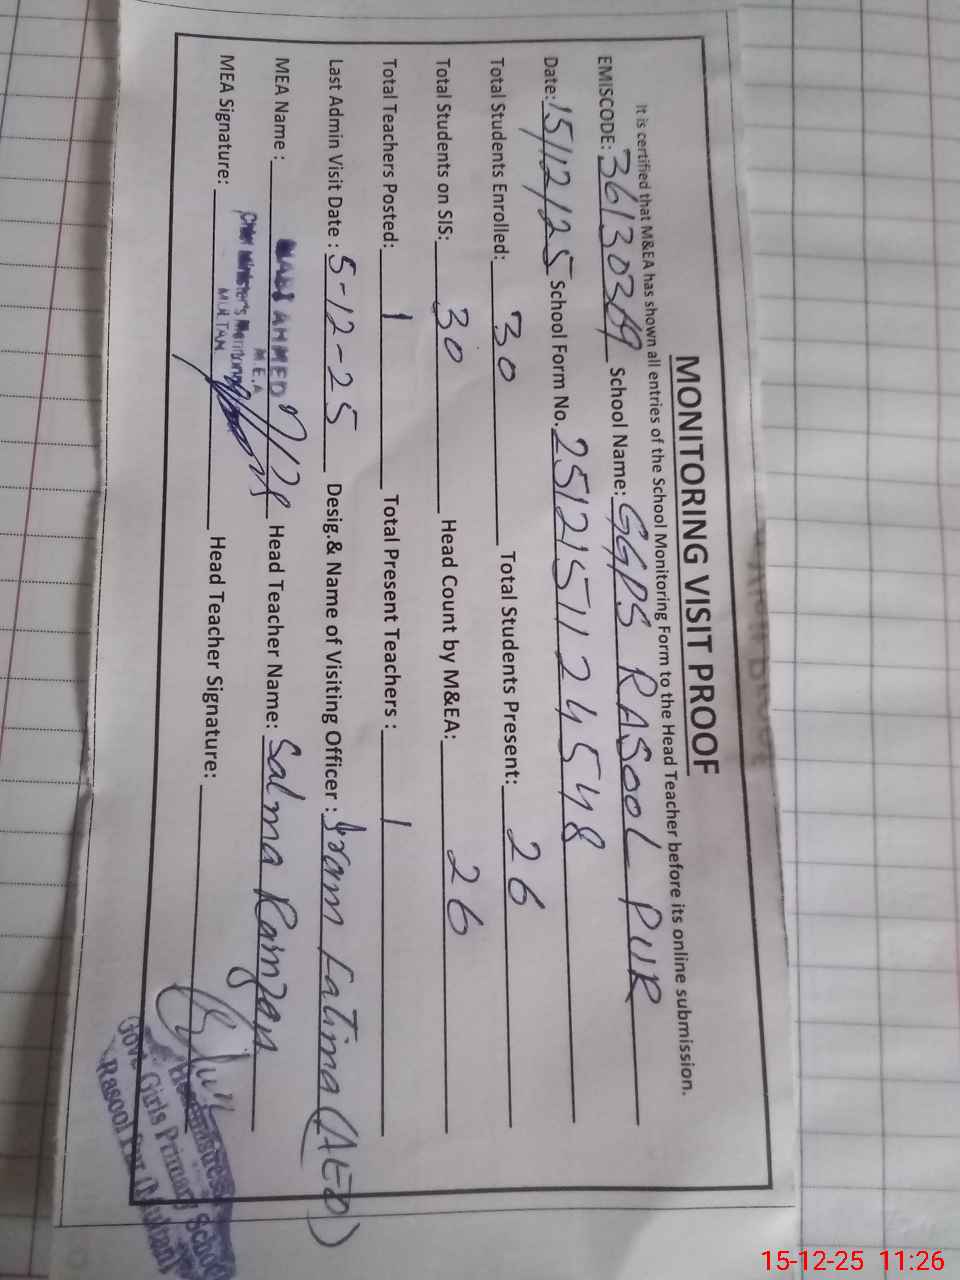 MONITORING VISIT PROOF
It is certified that M&EA has shown all entries of the School Monitoring Form to the Head Teacher before its online submission.
EMISCODE: School Name: GGPS RASOOL PUR
Date: 15/12/25 School Form No. 2512151124548
Total Students Enrolled: 30 Total Students Present: 26
Total Students on SIS: 30 Head Count by M&EA: 26
Total Teachers Posted: 1 Total Present Teachers : 1
Last Admin Visit Date : 5-12-25 Desig.& Name of Visiting Officer : Iram Fatima (AEO)
MEA Name : AHMED Head Teacher Name: Salma Ramzan
M.E.A
Chief Minister's Monitoring
MULTAN
MEA Signature: Head Teacher Signature:
Headmistress
Govt. Girls Primary School
Rasool Pur (Multan)
15-12-25 11:26